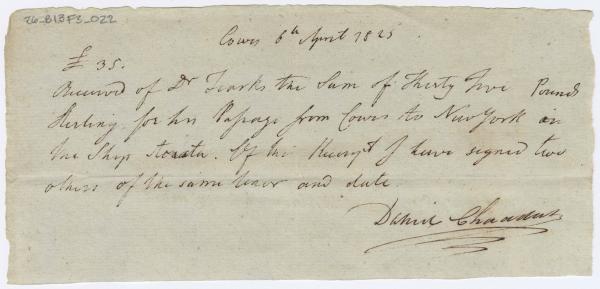 26-B13F3_022
Cowes 6th April 1825
£ 35.
Received of Dr the Sum of Thirty Five Pounds
Sterling for his Passage from Cowes to New York in
the Ship . Of this Receipt I have signed two
others of the same tenor and date
Daniel